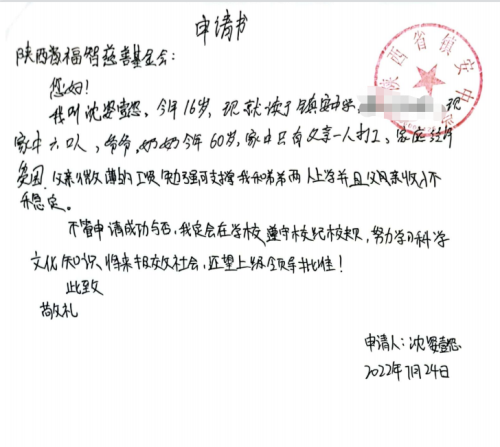 申请书
陕西省福智慈善基金会：
您好！
我叫沈 ，今年16岁，现就读于镇安中学 ，现
家中六口人，爷爷，奶奶今年60岁，家中只有父亲一人打工，家庭经济
贫困，父亲微薄的工资勉强可支撑我和弟弟两人上学并且父母亲收入不
稳定。
不管申请成功与否，我定会在学校遵守校纪校规，努力学习科学
文化知识、将来报效社会，还望上级领导批准！
此致
敬礼
申请人：沈
2022年7月24日
陕西省镇安中